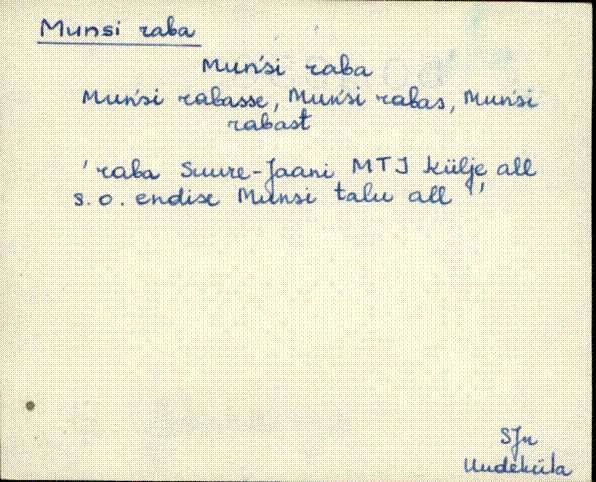 Munsi raba
Mun'si raba
Mun'si rabasse, Mun'si rabas, Mun'si
rabast
'raba Suure-Jaani MTJ külje all
s.o. endise Munsi talu all'
SJn
Uudeküla